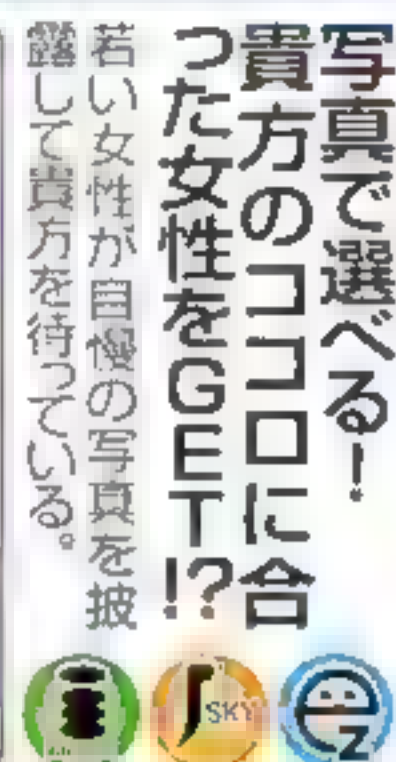 写真で選べる!
貴方のココロに合
った女性をGET!?
若い女性が自慢の写真を披
露して貴方を待っている。
i
J SKY
ez